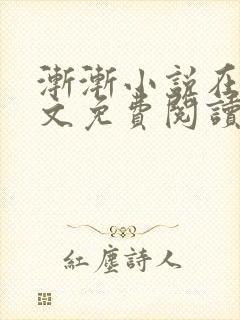 漸漸小說在
文免費閱讀
紅塵詩人